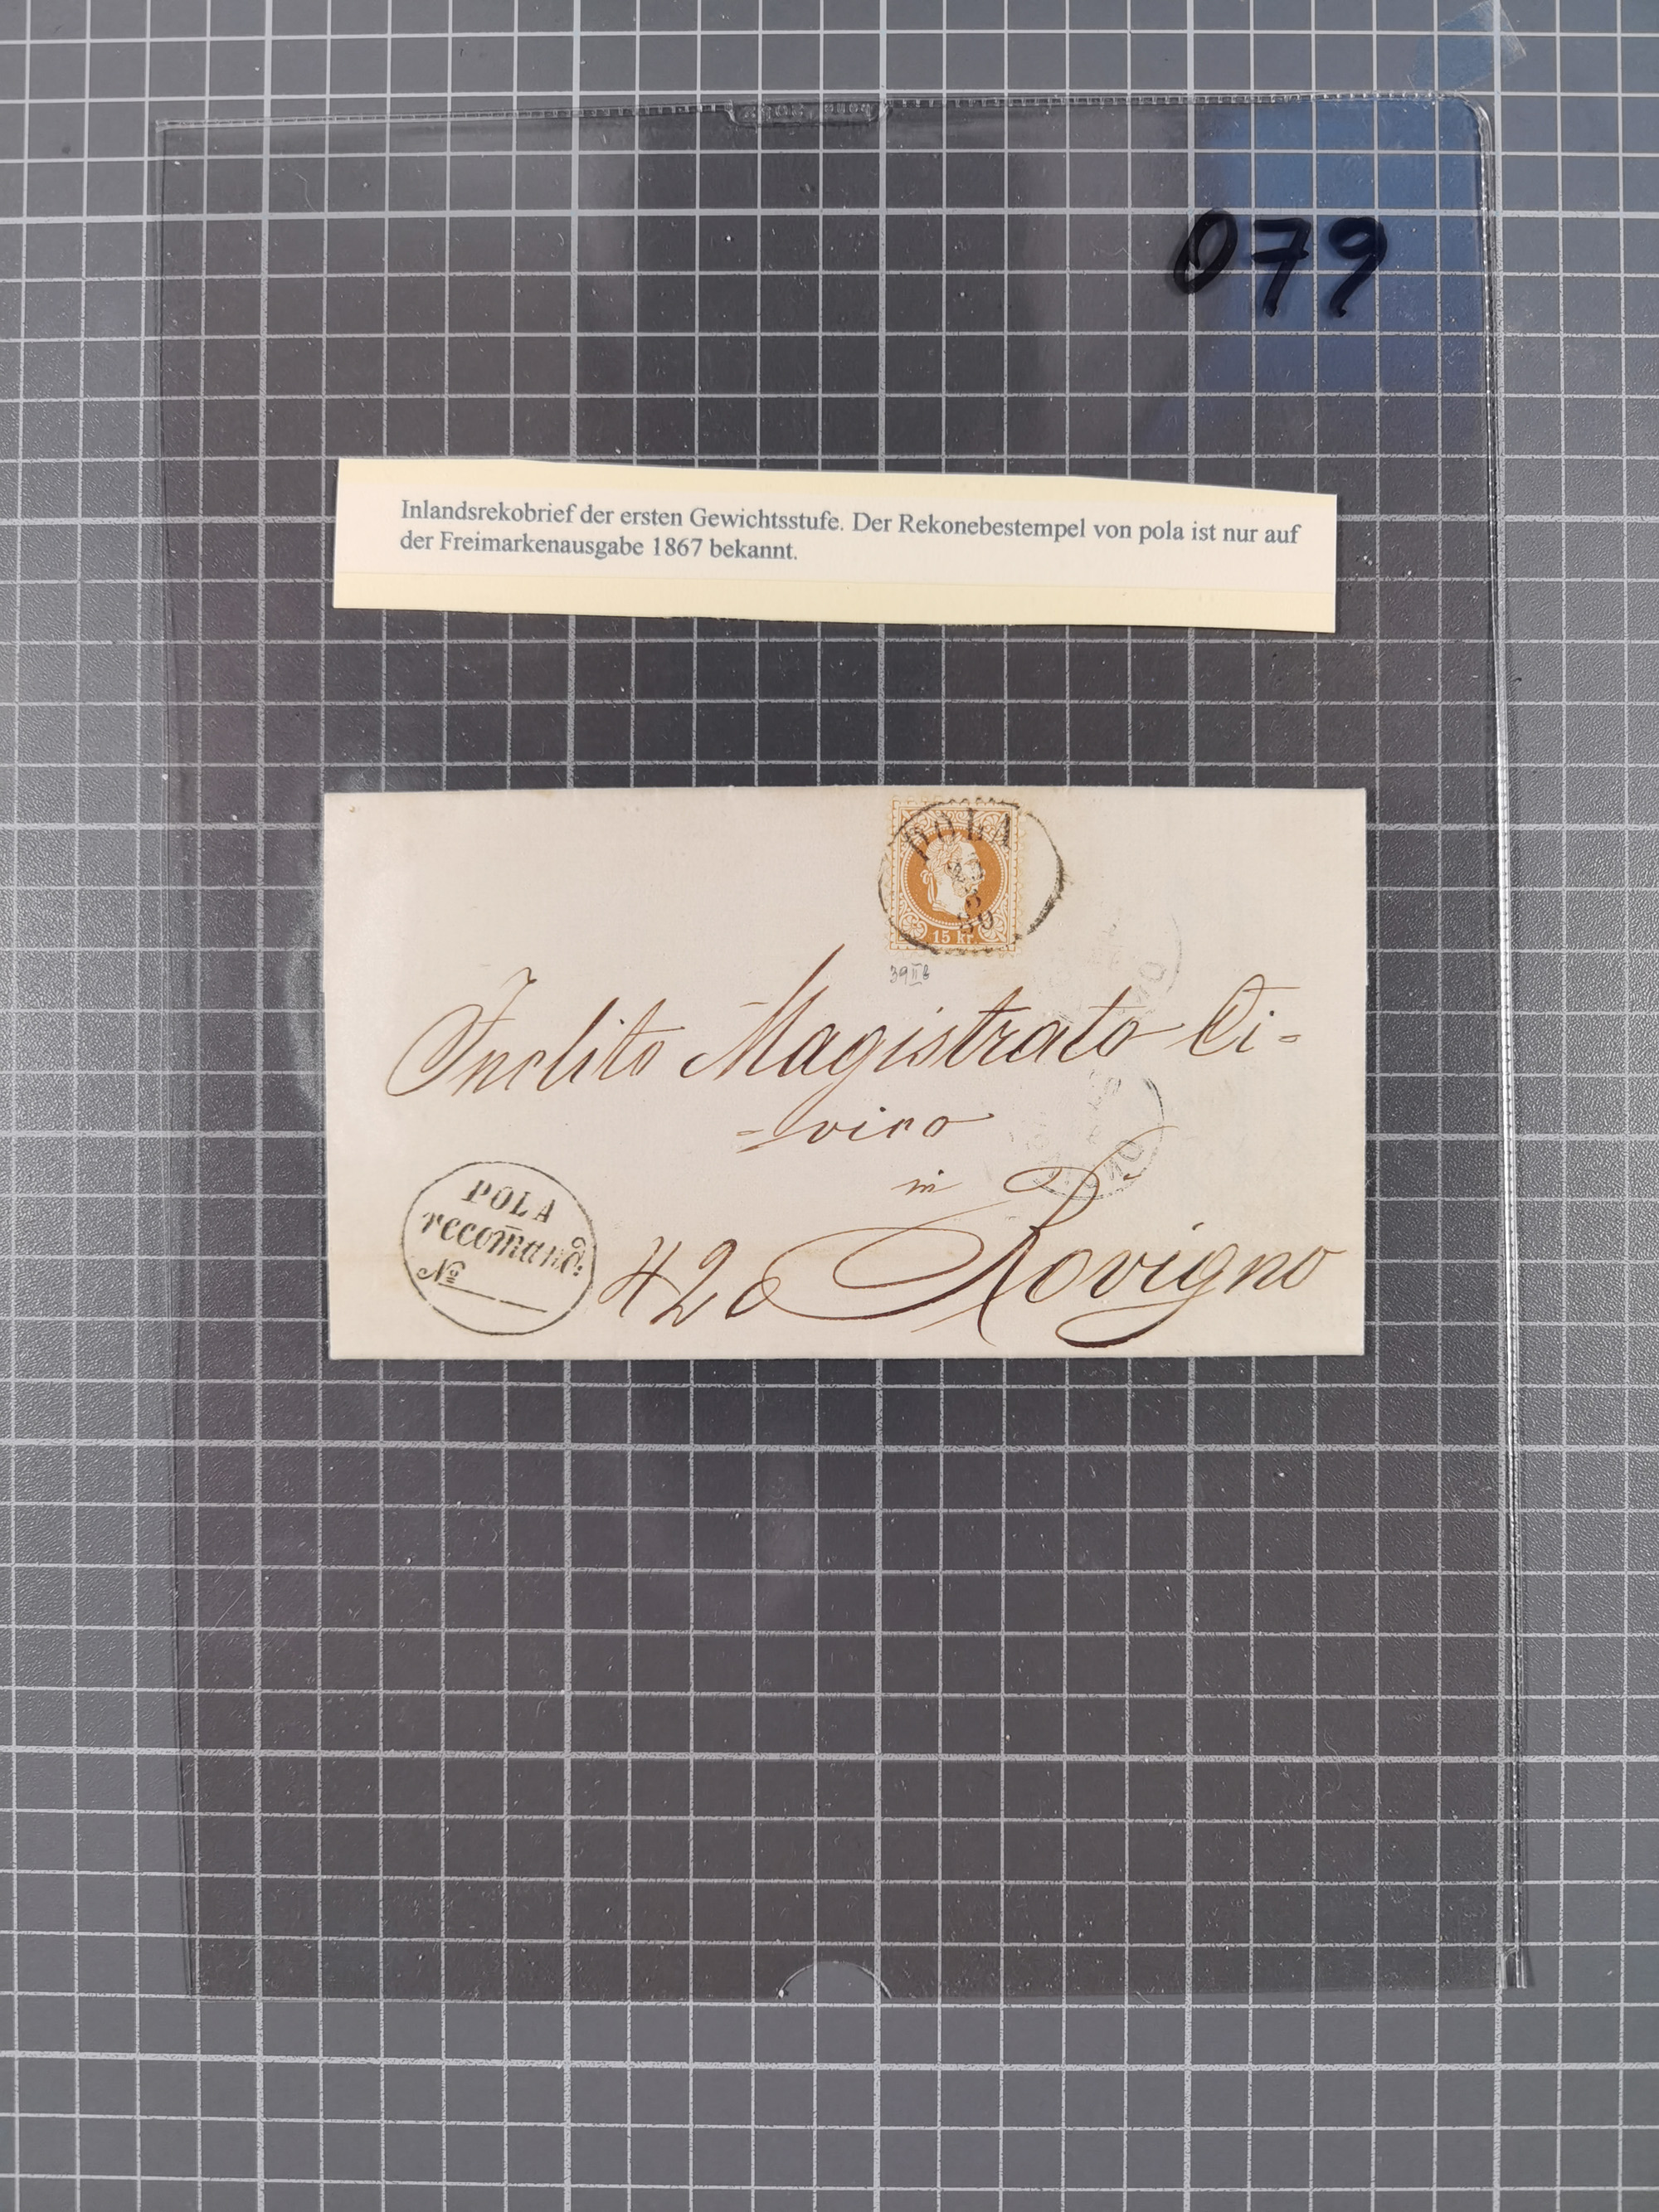 079
Inlandsrekobrief der ersten Gewichtsstufe. Der Rekonebestempel von pola ist nur auf
der Freimarkenausgabe 1867 bekannt.
POLA
80
15 kr.
39 II B
Inclito Magistrato Ci=
=vico
in
Rovigno
POLA
recom̄and:
No
420